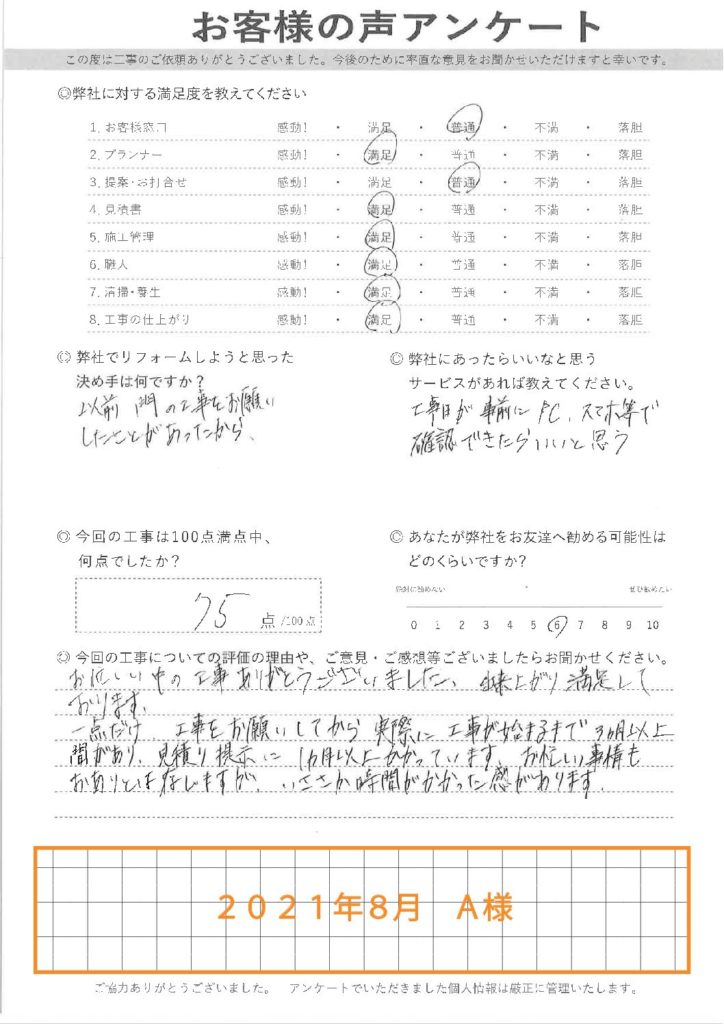 お客様の声アンケート
この度は工事のご依頼ありがとうございました。今後のために率直な意見をお聞かせいただけますと幸いです。
◎弊社に対する満足度を教えてください
1. お客様窓口 感動! ・ 満足 ・ 普通 ・ 不満 ・ 落胆
2. プランナー 感動! ・ 満足 ・ 普通 ・ 不満 ・ 落胆
3. 提案・お打合せ 感動! ・ 満足 ・ 普通 ・ 不満 ・ 落胆
4. 見積書 感動! ・ 満足 ・ 普通 ・ 不満 ・ 落胆
5. 施工管理 感動! ・ 満足 ・ 普通 ・ 不満 ・ 落胆
6. 職人 感動! ・ 満足 ・ 普通 ・ 不満 ・ 落胆
7. 清掃・養生 感動! ・ 満足 ・ 普通 ・ 不満 ・ 落胆
8. 工事の仕上がり 感動! ・ 満足 ・ 普通 ・ 不満 ・ 落胆
◎ 弊社でリフォームしようと思った
決め手は何ですか?
以前 門の工事をお願い
したことがあったから、
◎ 弊社にあったらいいなと思う
サービスがあれば教えてください。
工事日が事前にPC、スマホ等で
確認できたらいいと思う
◎ 今回の工事は100点満点中、
何点でしたか?
75 点 /100点
◎ あなたが弊社をお友達へ勧める可能性は
どのくらいですか?
絶対に勧めない ぜひ勧めたい
0 1 2 3 4 5 6 7 8 9 10
◎ 今回の工事についての評価の理由や、ご意見・ご感想等ございましたらお聞かせください。
お忙しい中の工事ありがとうございました、出来上がり満足して
おります。
一点だけ、工事をお願いしてから実際に工事が始まるまで3カ月以上
間があり、見積り提示に1カ月以上かかっています。お忙しい事情も
おありとは存じますが、いささか時間がかかった感があります。
2021年8月 A様
ご協力ありがとうございました。 アンケートでいただきました個人情報は厳正に管理いたします。